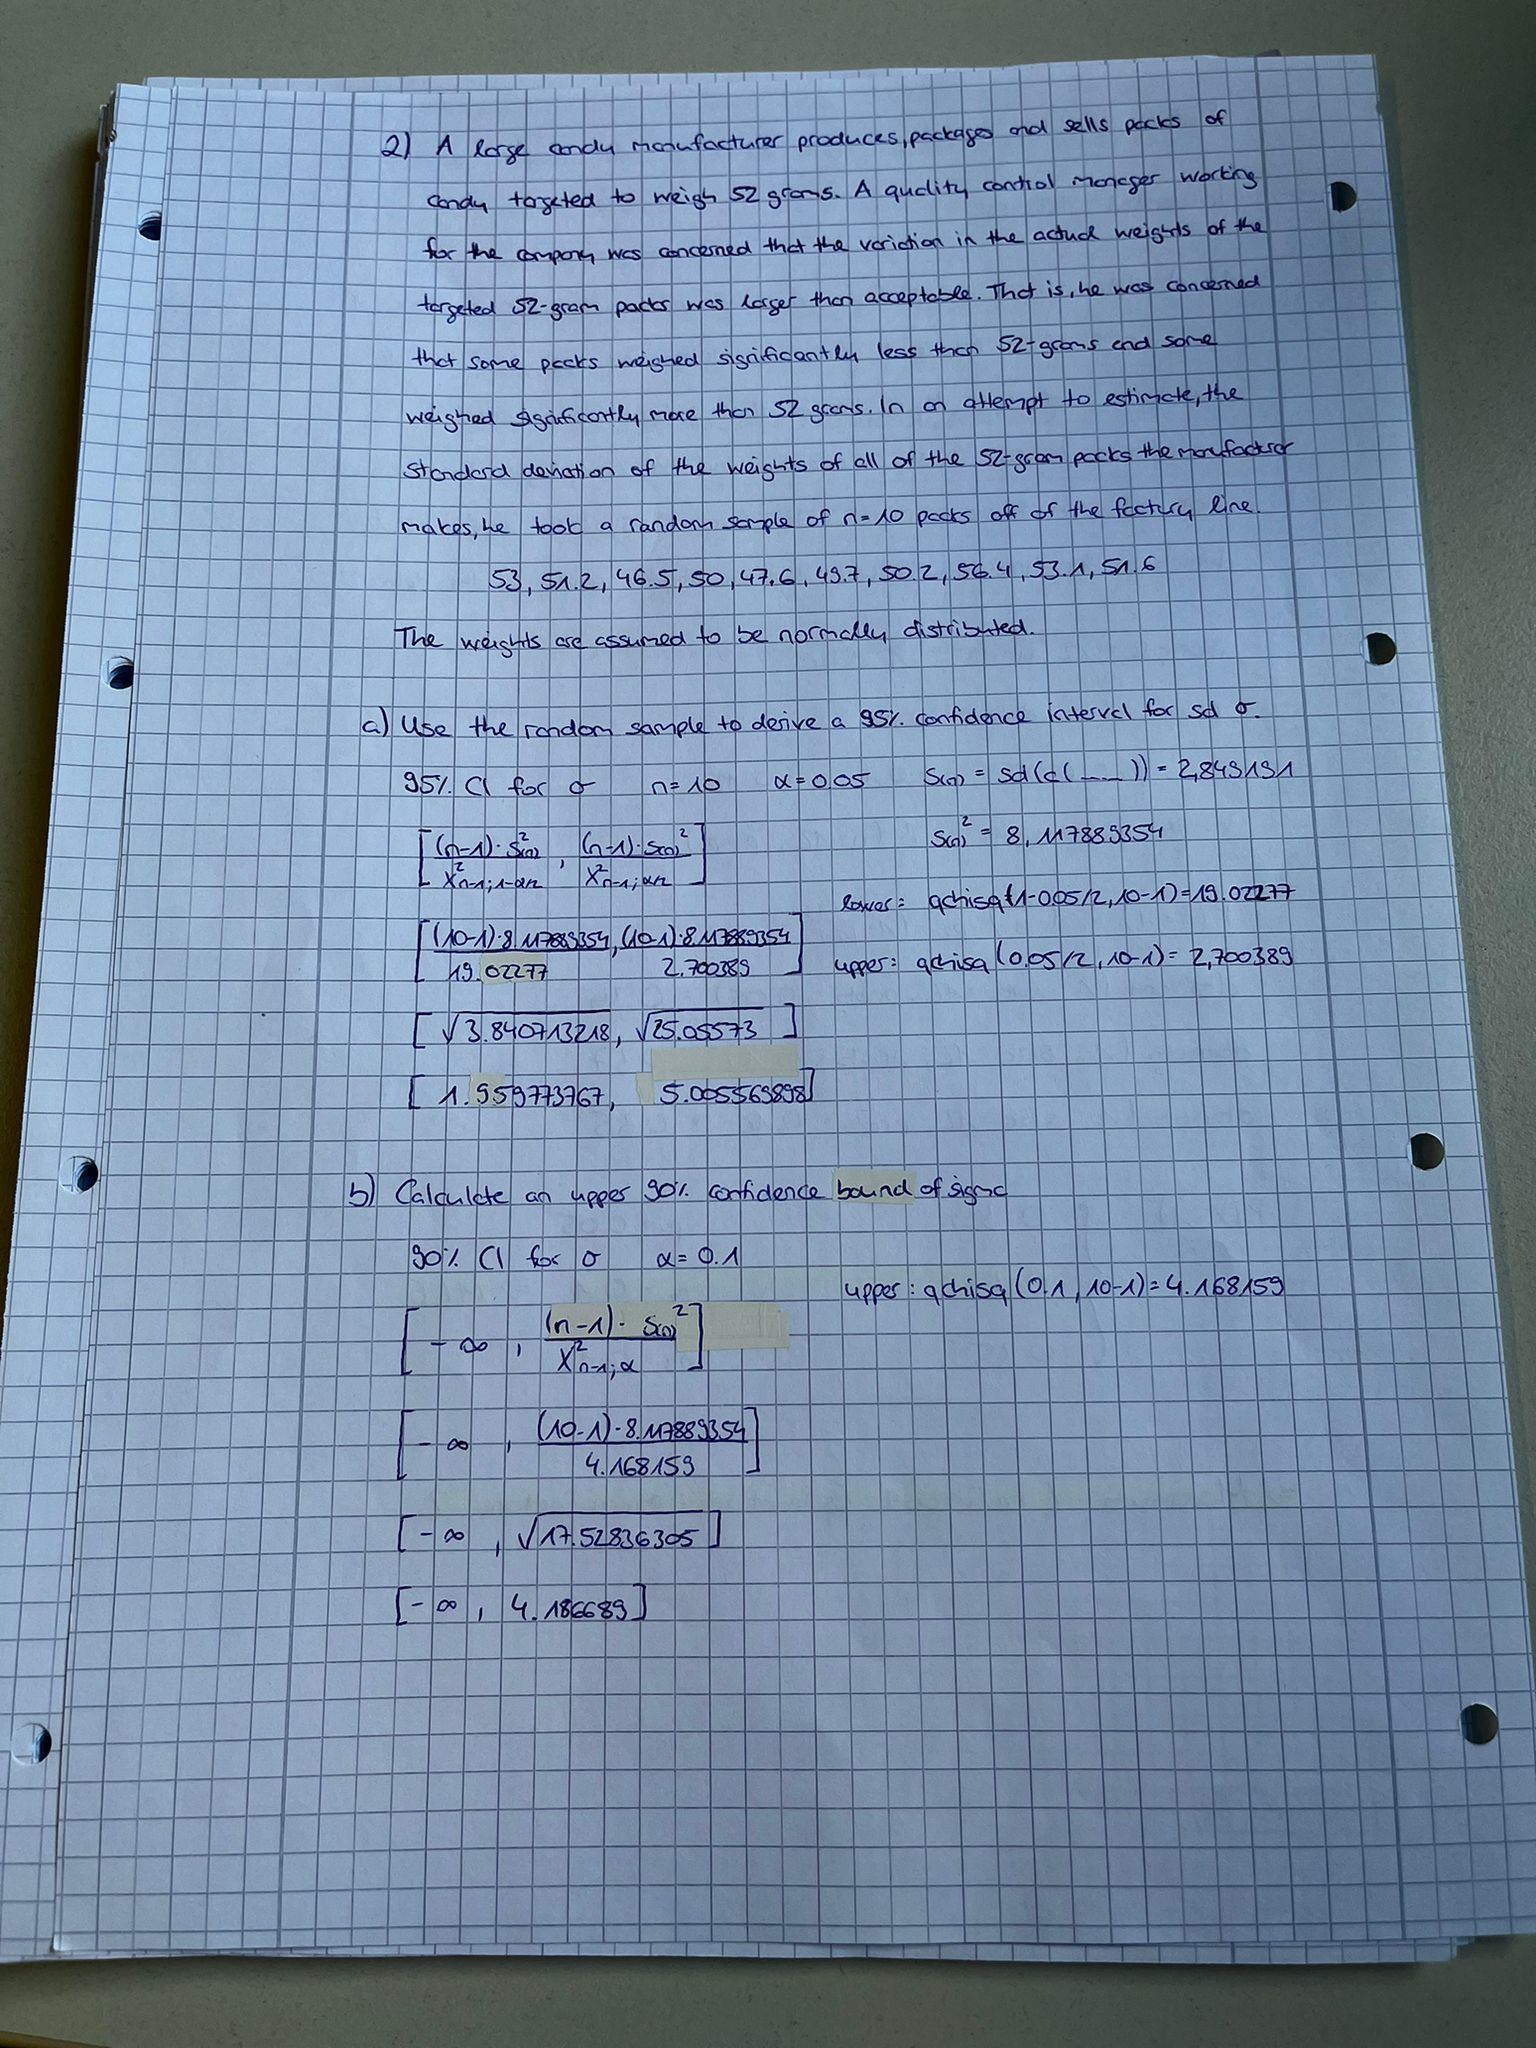 2) A large candy manufacturer produces, packages and sells packs of
candy targeted to weigh 52 grams. A quality control manager working
for the company was concerned that the variation in the actual weights of the
targeted 52-gram packs was larger than acceptable. That is, he was concerned
that some packs weighed significantly less than 52-grams and some
weighed significantly more than 52 grams. In an attempt to estimate, the
standard deviation of the weights of all of the 52-gram packs the manufacturer
makes, he took a random sample of n=10 packs off of the factory line.
53, 51.2, 46.5, 50, 47.6, 49.7, 50.2, 56.4, 53.1, 51.6
The weights are assumed to be normally distributed.
a) Use the random sample to derive a 95% confidence interval for sd σ.
95% CI for σ n=10 α=0.05 S(n) = sd(c(---)) = 2,849191
[(n-1)·S(n)²/χ²n-1;1-α/2 , (n-1)·S(n)²/χ²n-1;α/2] S(n)² = 8,117889354
lower: qchisq(1-0.05/2,10-1)=19.02277
[(10-1)·8.117889354/19.02277 , (10-1)·8.117889354/2.700389] upper: qchisq(0.05/2,10-1)=2,700389
[√3.840713218, √25.05573]
[1.959773767, 5.005569898]
b) Calculate an upper 90% confidence bound of sigma
90% CI for σ α=0.1
upper: qchisq(0.1,10-1)=4.168159
[-∞ , (n-1)·S(n)²/χ²n-1;α]
[-∞ , (10-1)·8.117889354/4.168159]
[-∞ , √17.52836305]
[-∞ , 4.186689]